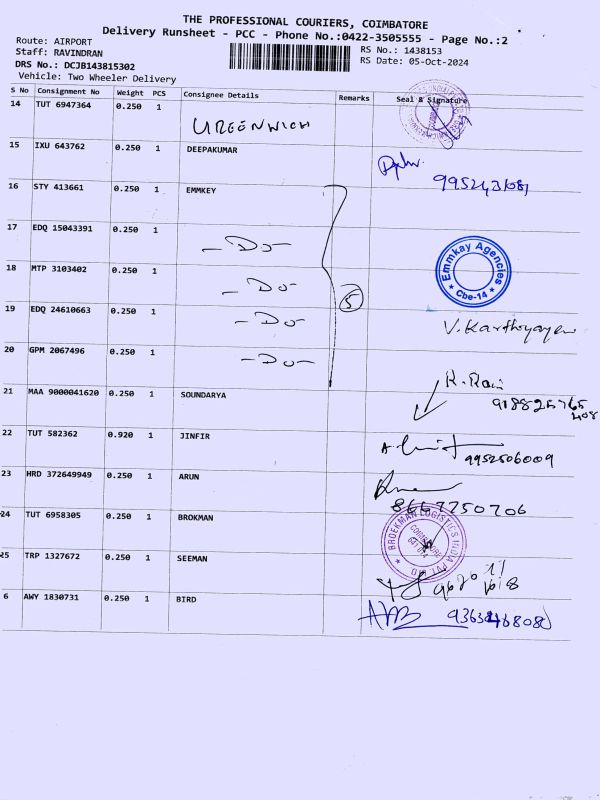 THE PROFESSIONAL COURIERS, COIMBATORE
Delivery Runsheet - PCC - Phone No.:0422-3505555 - Page No.:2
Route: AIRPORT
Staff: RAVINDRAN
DRS No.: DCJB143815302
Vehicle: Two Wheeler Delivery
RS No.: 1438153
RS Date: 05-Oct-2024
S No Consignment No Weight PCS Consignee Details Remarks Seal & Signature
14 TUT 6947364 0.250 1 UREENWICH
15 IXU 643762 0.250 1 DEEPAKUMAR
16 STY 413661 0.250 1 EMMKEY
17 EDQ 15043391 0.250 1 -Do-
18 MTP 3103402 0.250 1 -Do- 5
Emmkay Agencies
Cbe-14
19 EDQ 24610663 0.250 1 -Do-
20 GPM 2067496 0.250 1 -Do-
21 MAA 9000041620 0.250 1 SOUNDARYA
22 TUT 582362 0.920 1 JINFIR
9952506009
23 HRD 372649949 0.250 1 ARUN
8667750706
24 TUT 6958305 0.250 1 BROKMAN
BROEKMAN LOGISTICS INDIA PVT. LTD
25 TRP 1327672 0.250 1 SEEMAN
6 AWY 1830731 0.250 1 BIRD